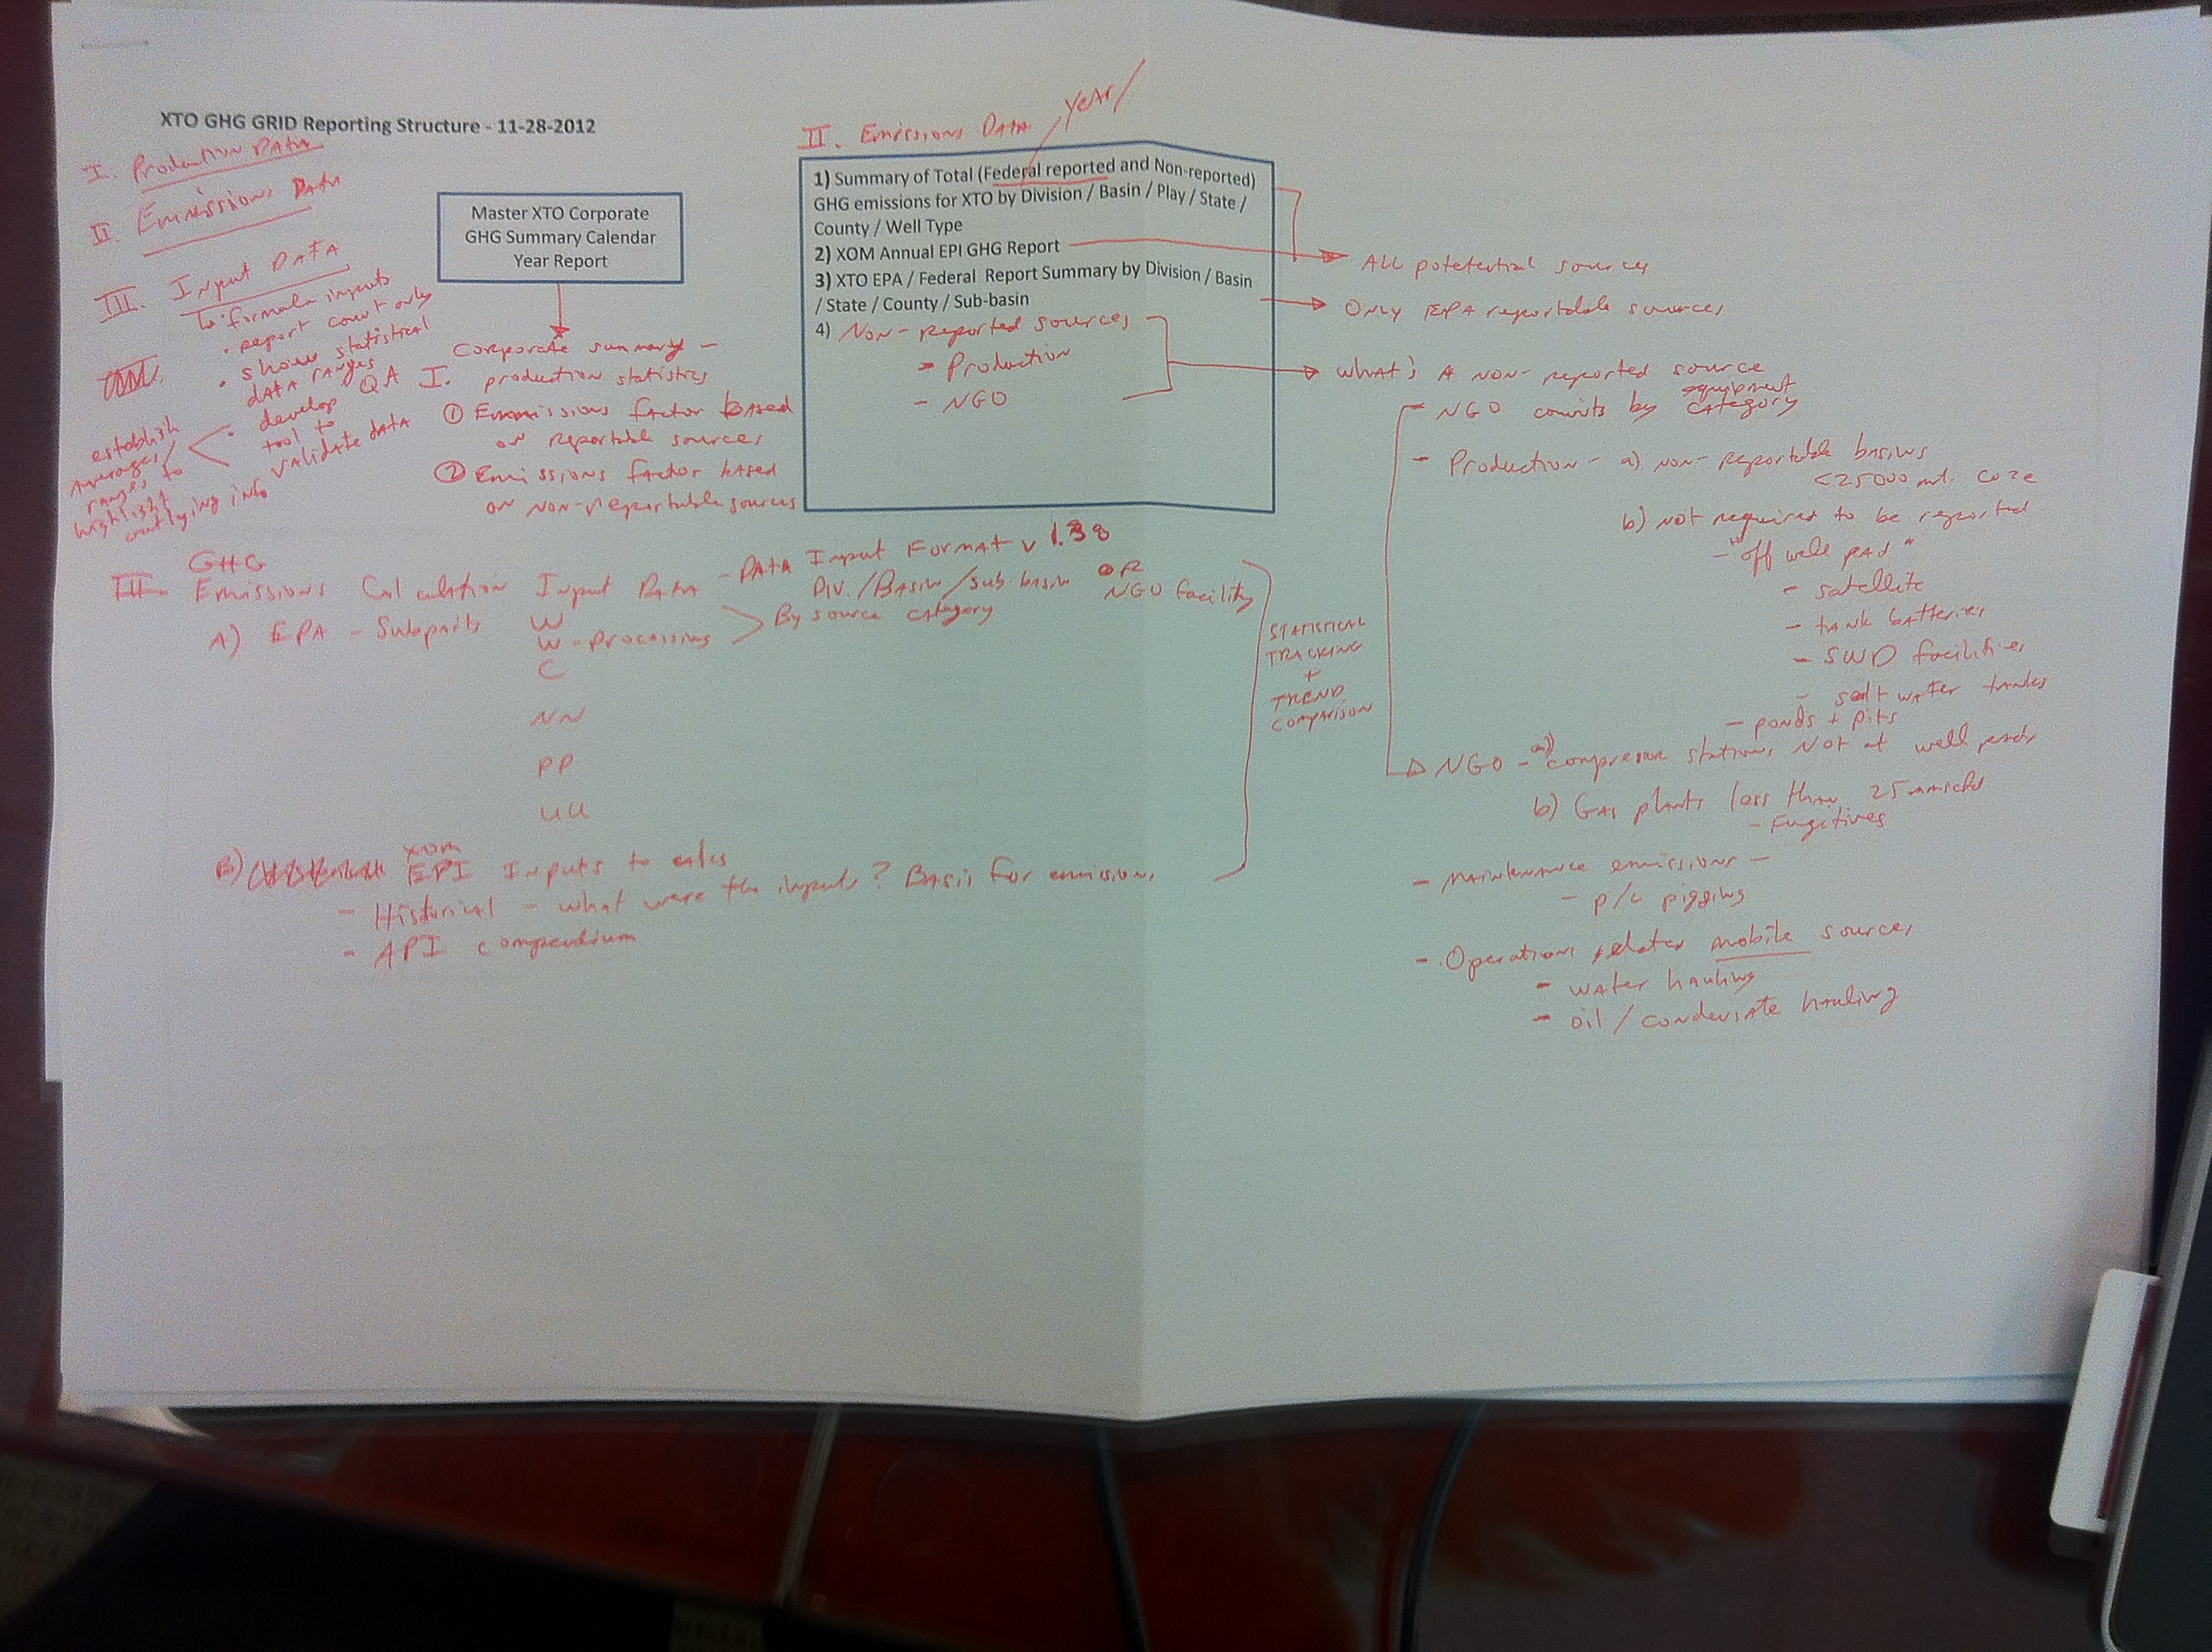 XTO GHG GRID Reporting Structure - 11-28-2012
I. Production Data
II. Emmissions Data
III. Input DATA
formula inputs
• report count only
• show statistical
DATA ranges
• develop QA
tool to
validate data
establish
averages/
ranges to
highlight
outlying info
Master XTO Corporate
GHG Summary Calendar
Year Report
Corporate summary -
I. production statistics
① Emmissions factor based
on reportable sources
② Emissions factor based
on non-reportable sources
II. Emissions Data
Year/
1) Summary of Total (Federal reported and Non-reported)
GHG emissions for XTO by Division / Basin / Play / State /
County / Well Type
2) XOM Annual EPI GHG Report
3) XTO EPA / Federal Report Summary by Division / Basin
/ State / County / Sub-basin
4) Non-reported sources
- Production
- NGO
ALL potetential sources
Only EPA reportable sources
what's A non-reported source
equipment
- NGO counts by CATegory
- Production - a) non-reportable basins
<25000 mt. CO2e
b) not required to be reported
- "off well pad"
- satellite
- tank batteries
- SWD facilities
- salt water tanks
- ponds + pits
NGO - a) compressor stations Not at well pads
b) Gas plants less than 25 mmscfd
- Fugitives
- maintenance emissions -
- P/L pigging
- Operations related mobile sources
- water hauling
- oil / condensate hauling
GHG
III Emissions Calculation Input Data - DATA Input Format v 1.38
Div./Basin/sub.basin OR
NGO facility
A) EPA - Subparts W
W - Processing
By source category
C
NN
PP
UU
STATISTICAL
TRACKING
+
TREND
COMPARISON
XOM
B) EPI Inputs to calcs
- Historical - what were the inputs? Basis for emissions
- API compendium